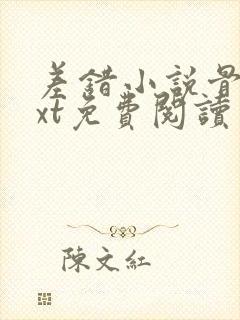 差錯小說最
xt免費閱讀
陳文紅